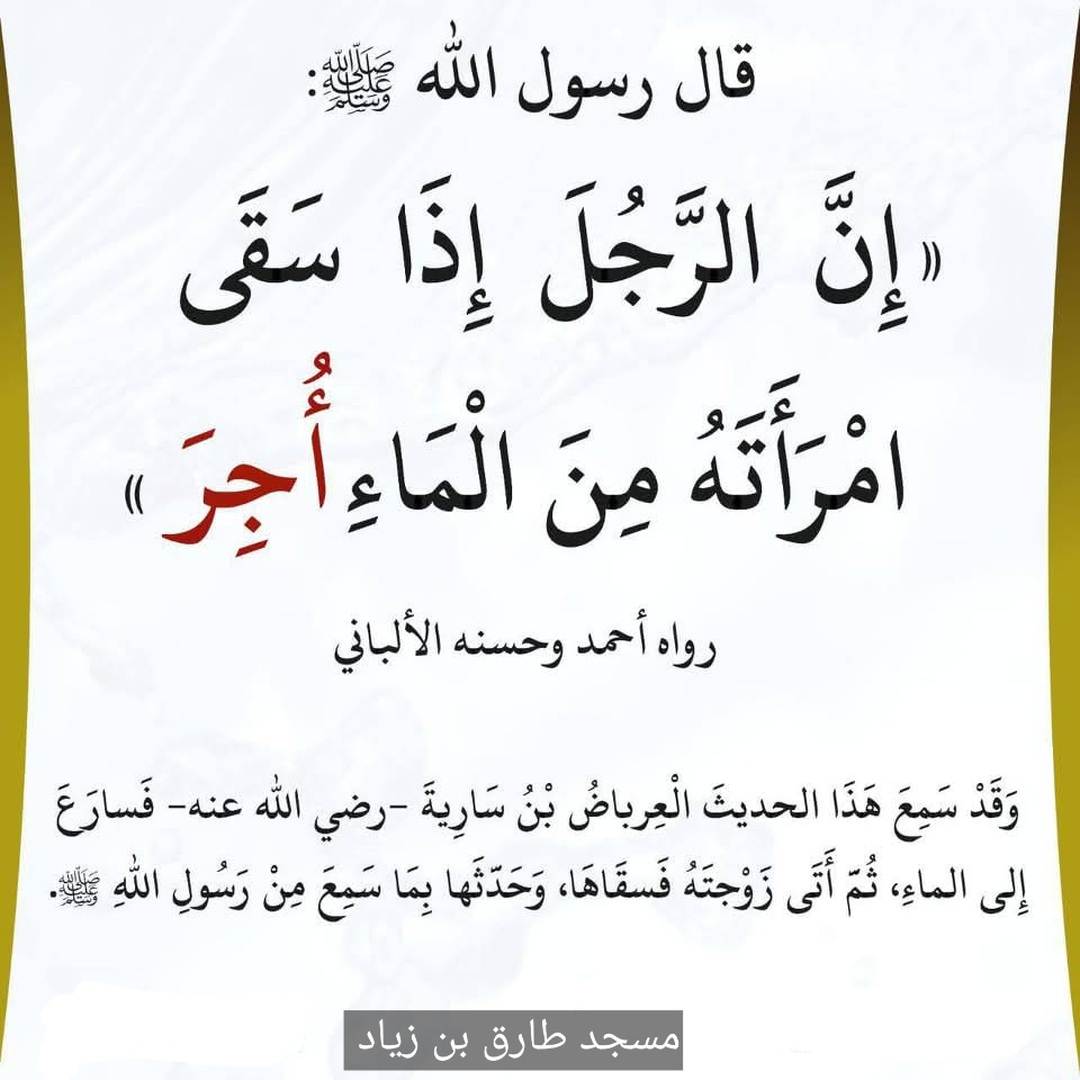 قال رسول الله ﷺ:
« إِنَّ الرَّجُلَ إِذَا سَقَى
امْرَأَتَهُ مِنَ الْمَاءِ أُجِرَ »
رواه أحمد وحسنه الألباني
وَقَدْ سَمِعَ هَذَا الحديثَ الْعِرباضُ بْنُ سَارِيةَ -رضي الله عنه- فَسارَعَ
إِلى الماءِ، ثُمّ أَتَى زَوْجتَهُ فَسقَاهَا، وَحَدّثَها بِمَا سَمِعَ مِنْ رَسُولِ اللهِ ﷺ.
مسجد طارق بن زياد